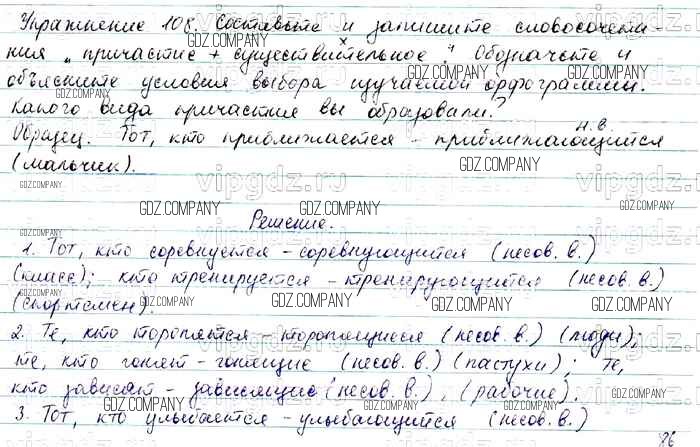 Упражнение 108. Составьте и запишите словосочета-
ния „причастие + существительное". Обозначьте и
объясните условия выбора изучаемой орфограммы.
Какого вида причастия вы образовали?
н.в.
Образец. Тот, кто приближается - приближающийся
(мальчик).
Решение.
1. Тот, кто соревнуется - соревнующийся (несов. в.)
(класс); кто тренируется - тренирующийся (несов. в.)
(спортсмен).
2. Те, кто торопятся торопящиеся (несов. в.) (люди);
те, кто гонят - гонящие (несов. в.) (пастухи); те,
кто зависят - зависящие (несов. в.), (рабочие).
3. Тот, кто улыбается - улыбающийся (несов. в.)
26
GDZ.COMPANY
vipgdz.ru